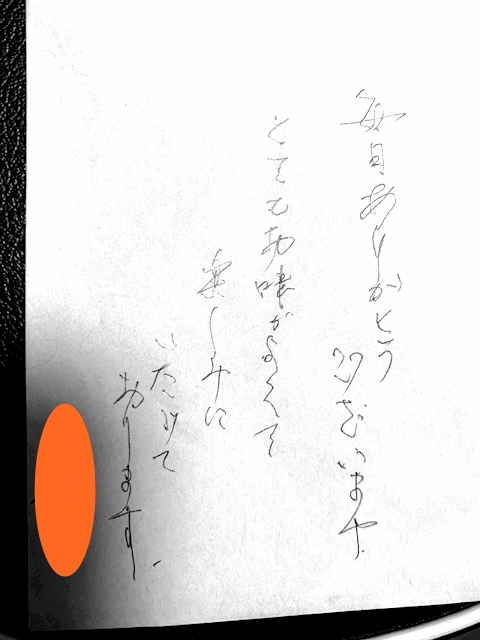 毎日ありがとう
ございます
とてもお味がよくて
楽しみに
いただいて
おります